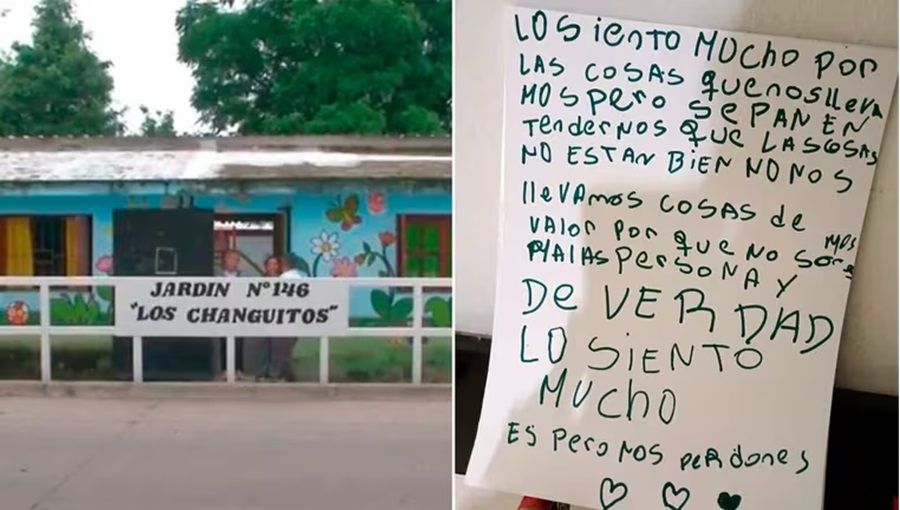 JARDIN Nº146
"LOS CHANGUITOS"
LO Siento MUCHO POR
LAS COSAS quenoslleva
MOS pero SePAN EN
TendeRNOS que LASCOSAS
NO ESTAN BIEN NO NOS
llevamos cosas de
VALOR POR que NO somos
MALAS PersoNA Y
De VERDAD
LO SieNTO
MUcho
Es pero nos perdones